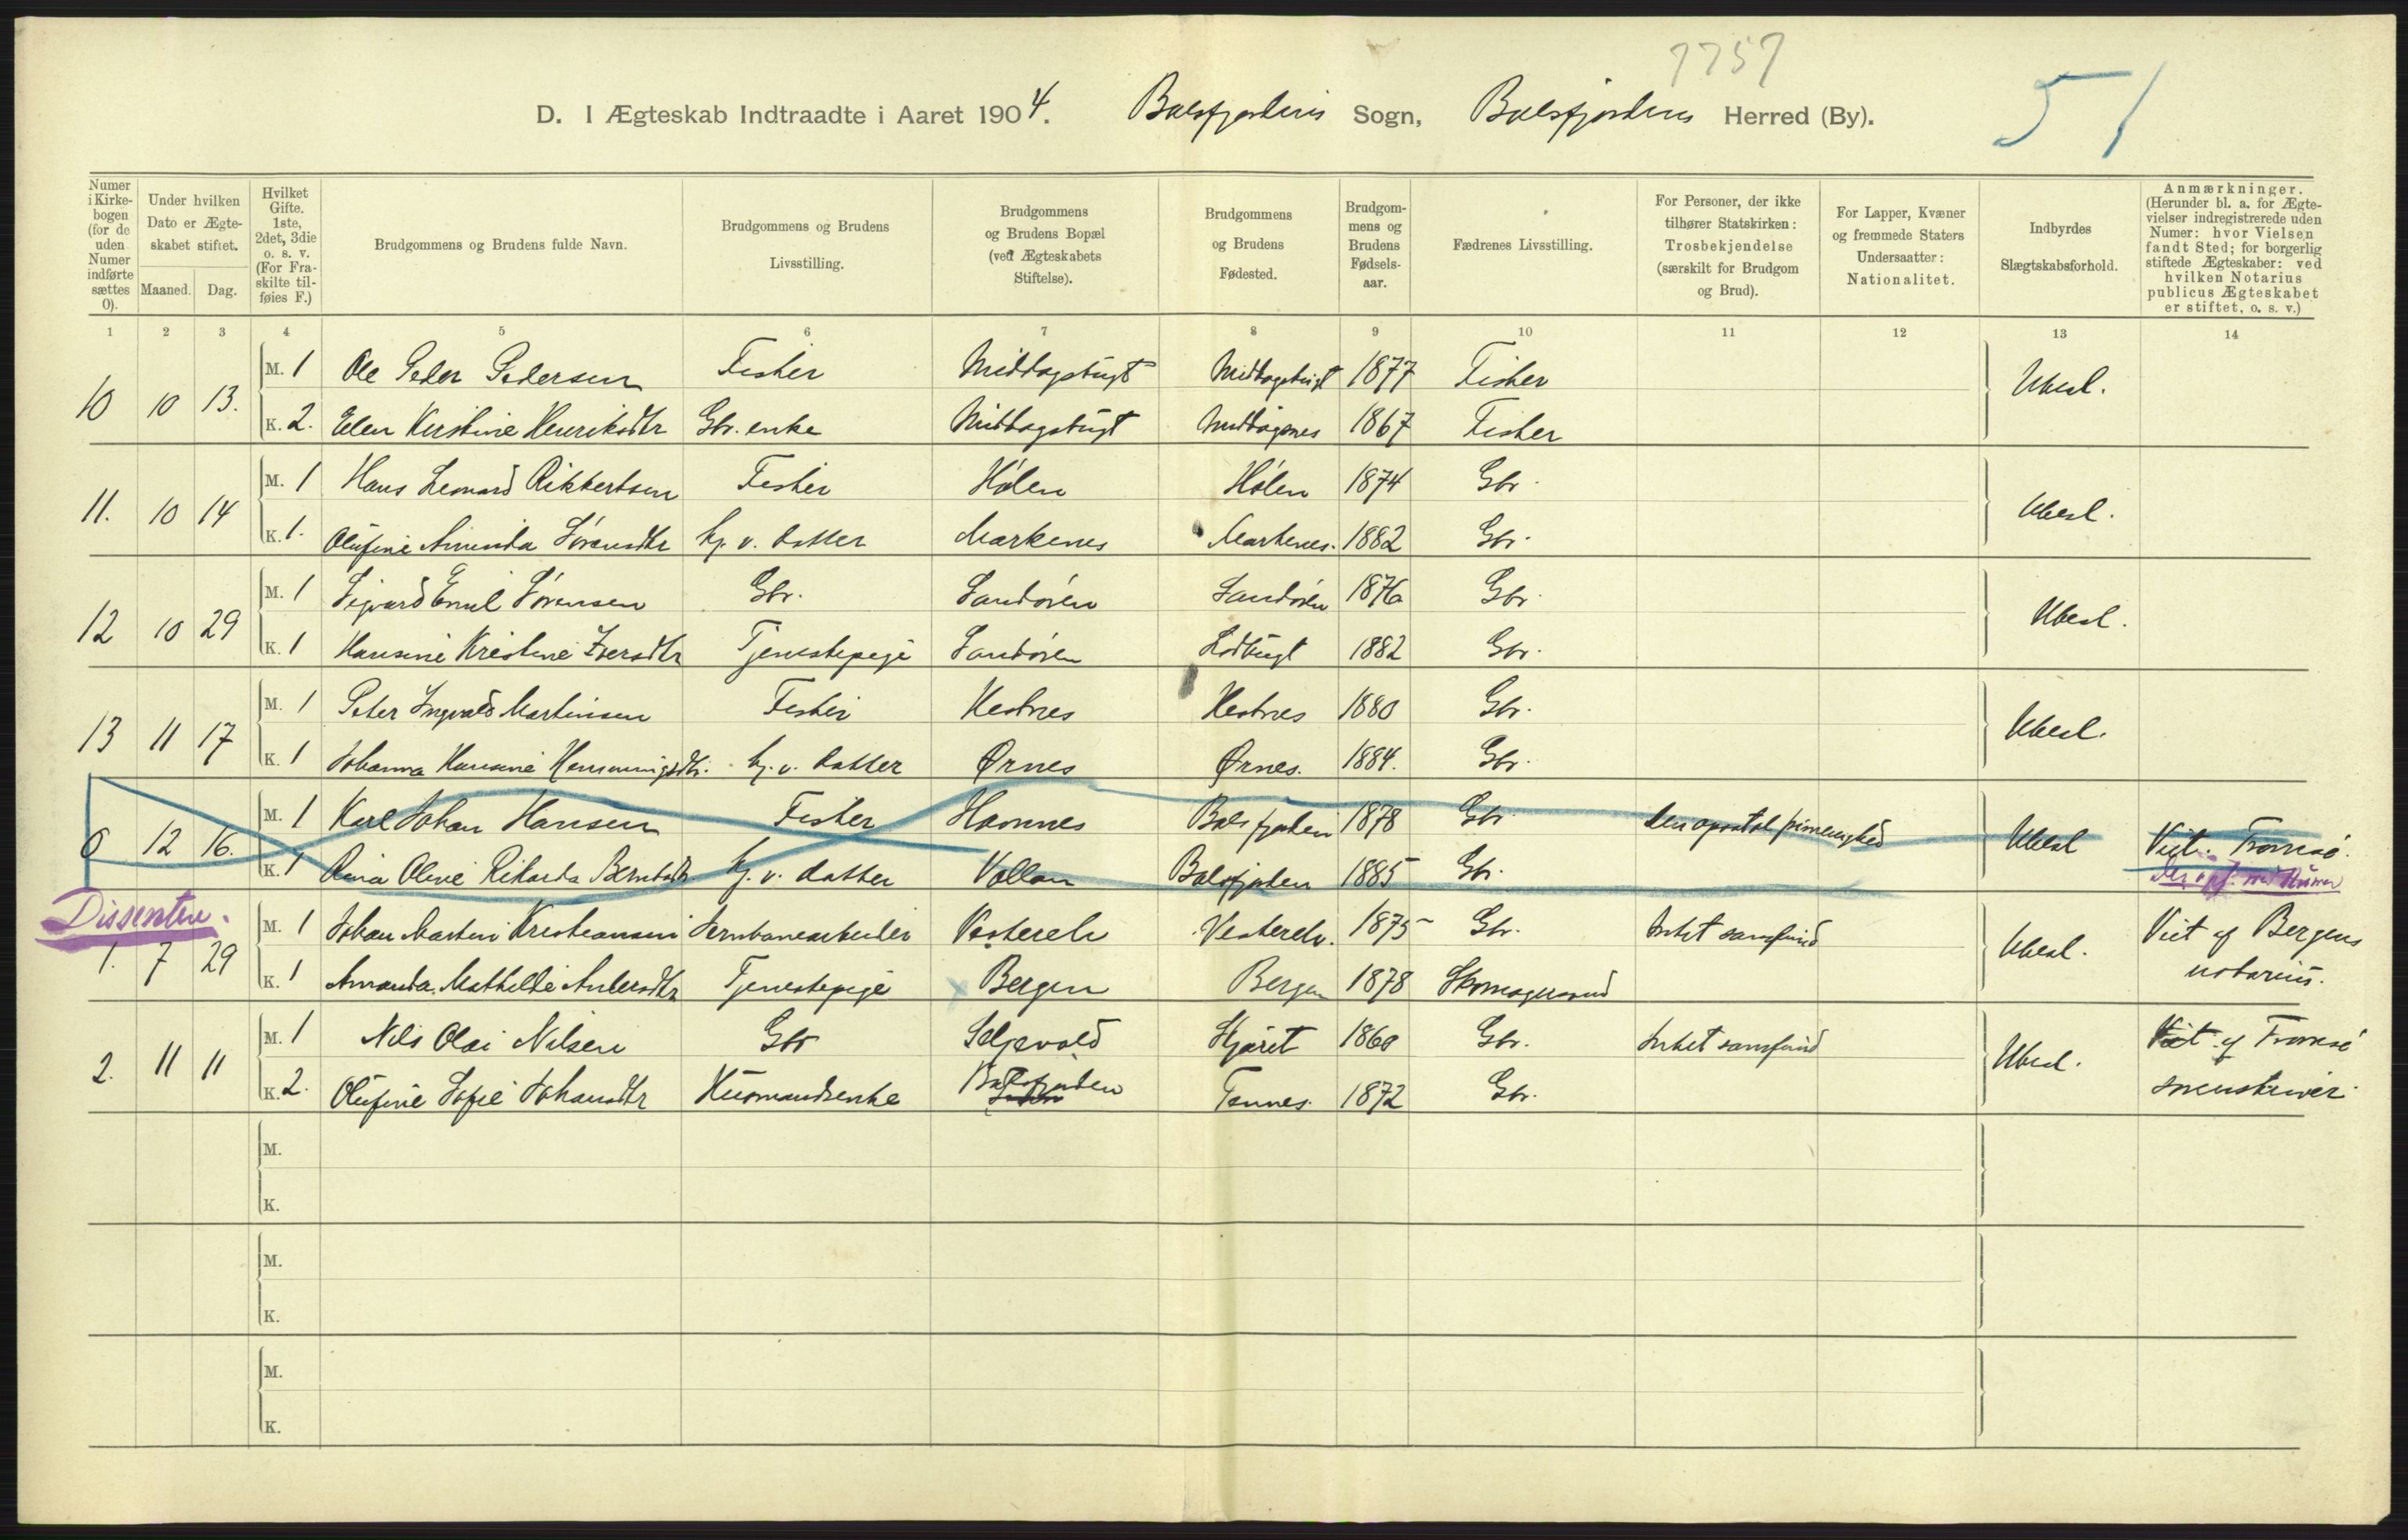 7757
51
D. I Ægteskab Indtraadte i Aaret 1904. Balsfjordens Sogn, Balsfjordens Herred (By).
Numer i Kirkebogen (for de uden Numer indførte sættes 0).
Under hvilken Dato er Ægteskabet stiftet.
Maaned. Dag.
Hvilket Gifte. 1ste, 2det, 3die o. s. v. (For Fraskilte tilføies F.)
Brudgommens og Brudens fulde Navn.
Brudgommens og Brudens Livsstilling.
Brudgommens og Brudens Bopæl (ved Ægteskabets Stiftelse).
Brudgommens og Brudens Fødested.
Brudgommens og Brudens Fødselsaar.
Fædrenes Livsstilling.
For Personer, der ikke tilhører Statskirken: Trosbekjendelse (særskilt for Brudgom og Brud).
For Lapper, Kvæner og fremmede Staters Undersaatter: Nationalitet.
Indbyrdes Slægtskabsforhold.
Anmærkninger. (Herunder bl. a. for Ægtevielser indregistrerede uden Numer: hvor Vielsen fandt Sted; for borgerlig stiftede Ægteskaber: ved hvilken Notarius publicus Ægteskabet er stiftet, o. s. v.)
1 2 3 4 5 6 7 8 9 10 11 12 13 14
10 10 13. M. 1 Ole Peder Pedersen Fisker Middagsbugt Middagsbugt 1877 Fisker Ubesl.
K. 2. Elen Kirstine Henriksdtr Gbr. enke Middagsbugt Middagsnes 1867 Fisker
11. 10 14 M. 1 Hans Leonard Rikkertsen Fisker Hølen Hølen 1874 Gbr. Ubesl.
K. 1. Olufine Aminda Sørensdtr hj. v. datter Markenes Markenes. 1882 Gbr.
12 10 29 M. 1 Sigvard Emil Sørensen Gbr. Sandøren Sandøren 1876 Gbr. Ubesl.
K. 1 Hansine Kristine Iversdtr Tjenestepige Sandøren 1882 Gbr.
13 11 17 M. 1 Peter Ingvald Martinsen Fisker Hestnes Hestnes 1880 Gbr. Ubesl.
K. 1 Johanna Hansine Henningsdtr. hj. v. datter Ørnes Ørnes. 1884. Gbr.
0 12 16. M. 1 Karl Johan Hansen Fisker Hamnes Balsfjorden 1878 Gbr. den apostol. frimenighed Ubesl Viet i Tromsø.
K. 1 Olive Rikarda Berntsdtr hj. v. datter Vollan Balsfjorden 1885 Gbr.
Dissentere.
1. 7 29 M. 1 Johan Martin Kristiansen Jernbanearbeider Vesterelv Vesterelv. 1875 Gbr. Intet samfund Ubesl. Viet af Bergens
K. 1 Amanda Mathilde Andersdtr Tjenestepige Bergen Bergen 1878 Skomagersvend notarius.
2. 11 11 M. 1 Nils Olai Nilsen Gbr Seljevold Skjæret 1860 Gbr. Intet samfund Ubesl. Viet af Tromsø
K. 2. Olufine Sofie Johansdtr Husmandsenke Balsfjorden Tennes. 1872 Gbr. sorenskriver.
M.
K.
M.
K.
M.
K.